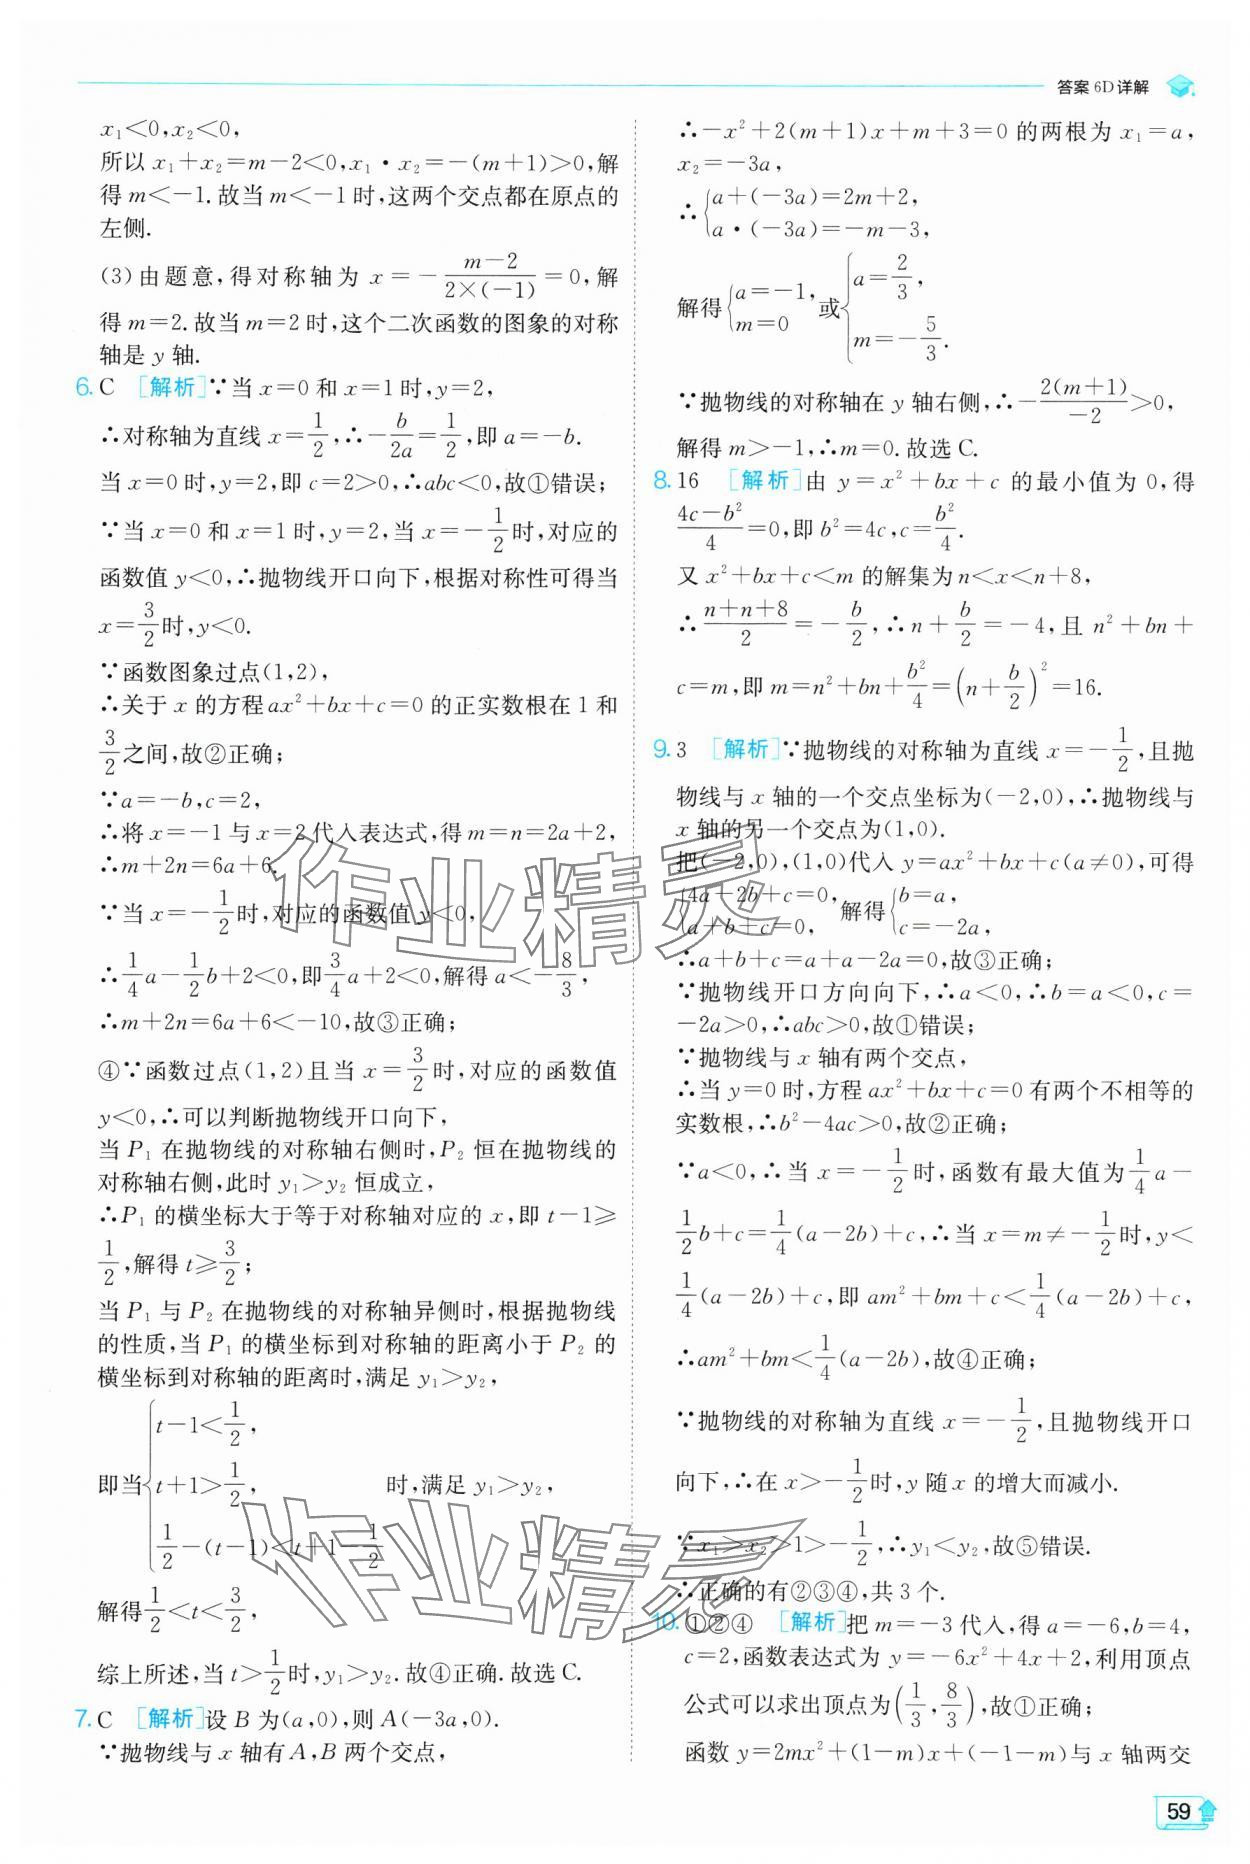 答案 6D 详解
x₁<0,x₂<0,
所以 x₁+x₂=m-2<0,x₁·x₂=-(m+1)>0,解
得 m<-1.故当 m<-1 时,这两个交点都在原点的
左侧.
(3)由题意,得对称轴为 x=-\frac{m-2}{2×(-1)}=0,解
得 m=2.故当 m=2 时,这个二次函数的图象的对称
轴是 y 轴.
6. C [解析]∵当 x=0 和 x=1 时,y=2,
∴对称轴为直线 x=\frac{1}{2},∴-\frac{b}{2a}=\frac{1}{2},即 a=-b.
当 x=0 时,y=2,即 c=2>0,∴abc<0,故①错误;
∵当 x=0 和 x=1 时,y=2,当 x=-\frac{1}{2}时,对应的
函数值 y<0,∴抛物线开口向下,根据对称性可得当
x=\frac{3}{2}时,y<0.
∵函数图象过点(1,2),
∴关于 x 的方程 ax²+bx+c=0 的正实数根在 1 和
\frac{3}{2}之间,故②正确;
∵a=-b,c=2,
∴将 x=-1 与 x=2 代入表达式,得 m=n=2a+2,
∴m+2n=6a+6.
∵当 x=-\frac{1}{2}时,对应的函数值 y<0,
∴\frac{1}{4}a-\frac{1}{2}b+2<0,即\frac{3}{4}a+2<0,解得 a<-\frac{8}{3},
∴m+2n=6a+6<-10,故③正确;
④∵函数过点(1,2)且当 x=\frac{3}{2}时,对应的函数值
y<0,∴可以判断抛物线开口向下,
当 P₁ 在抛物线的对称轴右侧时,P₂ 恒在抛物线的
对称轴右侧,此时 y₁>y₂ 恒成立,
∴P₁ 的横坐标大于等于对称轴对应的 x,即 t-1≥
\frac{1}{2},解得 t≥\frac{3}{2};
当 P₁ 与 P₂ 在抛物线的对称轴异侧时,根据抛物线
的性质,当 P₁ 的横坐标到对称轴的距离小于 P₂ 的
横坐标到对称轴的距离时,满足 y₁>y₂,
t-1<\frac{1}{2},
即当 t+1>\frac{1}{2}, 时,满足 y₁>y₂,
\frac{1}{2}-(t-1)<t+1-\frac{1}{2}
解得\frac{1}{2}<t<\frac{3}{2},
综上所述,当 t>\frac{1}{2}时,y₁>y₂.故④正确.故选 C.
7. C [解析]设 B 为(a,0),则 A(-3a,0).
∵抛物线与 x 轴有 A,B 两个交点,
∴-x²+2(m+1)x+m+3=0 的两根为 x₁=a,
x₂=-3a,
∴{a+(-3a)=2m+2,
a·(-3a)=-m-3,
解得{a=-1, m=0 或{a=\frac{2}{3}, m=-\frac{5}{3}.
∵抛物线的对称轴在 y 轴右侧,∴-\frac{2(m+1)}{-2}>0,
解得 m>-1,∴m=0.故选 C.
8. 16 [解析]由 y=x²+bx+c 的最小值为 0,得
\frac{4c-b²}{4}=0,即 b²=4c,c=\frac{b²}{4}.
又 x²+bx+c<m 的解集为 n<x<n+8,
∴\frac{n+n+8}{2}=-\frac{b}{2},∴n+\frac{b}{2}=-4,且 n²+bn+
c=m,即 m=n²+bn+\frac{b²}{4}=(n+\frac{b}{2})²=16.
9. 3 [解析]∵抛物线的对称轴为直线 x=-\frac{1}{2},且抛
物线与 x 轴的一个交点坐标为(-2,0),∴抛物线与
x 轴的另一个交点为(1,0).
把(-2,0),(1,0)代入 y=ax²+bx+c(a≠0),可得
{4a-2b+c=0, a+b+c=0, 解得{b=a, c=-2a,
∴a+b+c=a+a-2a=0,故③正确;
∵抛物线开口方向向下,∴a<0,∴b=a<0,c=
-2a>0,∴abc>0,故①错误;
∵抛物线与 x 轴有两个交点,
∴当 y=0 时,方程 ax²+bx+c=0 有两个不相等的
实数根,∴b²-4ac>0,故②正确;
∵a<0,∴当 x=-\frac{1}{2}时,函数有最大值为\frac{1}{4}a-
\frac{1}{2}b+c=\frac{1}{4}(a-2b)+c,∴当 x=m≠-\frac{1}{2}时,y<
\frac{1}{4}(a-2b)+c,即 am²+bm+c<\frac{1}{4}(a-2b)+c,
∴am²+bm<\frac{1}{4}(a-2b),故④正确;
∵抛物线的对称轴为直线 x=-\frac{1}{2},且抛物线开口
向下,∴在 x>-\frac{1}{2}时,y 随 x 的增大而减小.
∵x₁>x₂>1>-\frac{1}{2},∴y₁<y₂,故⑤错误.
∴正确的有②③④,共 3 个.
10. ①②④ [解析]把 m=-3 代入,得 a=-6,b=4,
c=2,函数表达式为 y=-6x²+4x+2,利用顶点
公式可以求出顶点为(\frac{1}{3},\frac{8}{3}),故①正确;
函数 y=2mx²+(1-m)x+(-1-m)与 x 轴两交
59
作业精灵
作业精灵